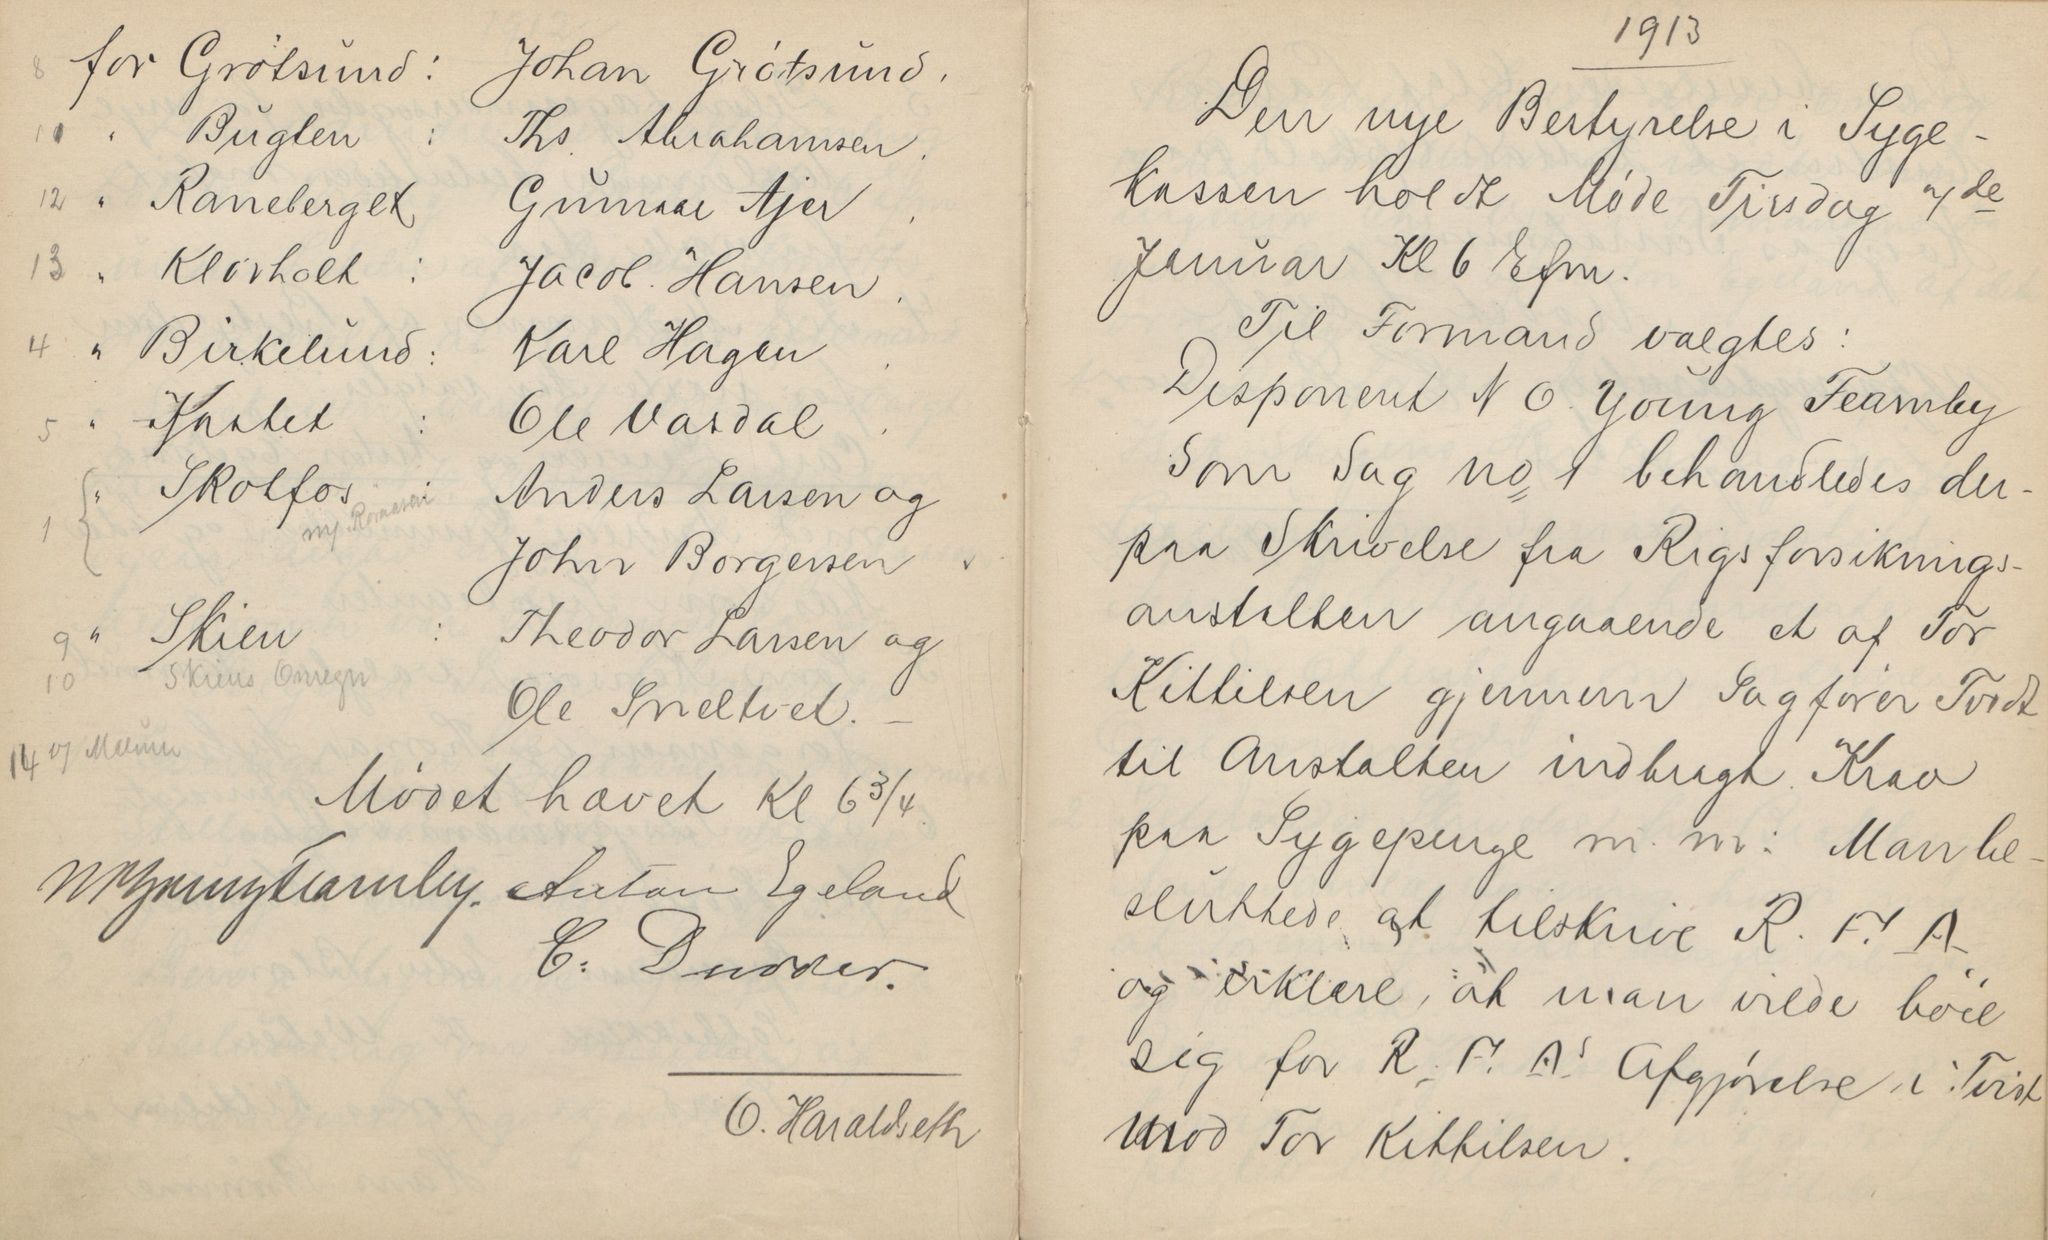 8 for Grötsund : Johan Grötsund .
11 " Bugten : Ths. Abrahamsen .
12 " Raneberget Gunnar Ajer .
13 " Klovholt : Jacob Hansen .
4 " Birkelund : Karl Hagen .
5 " Kastet : Ole Vasdal .
1 { " Skotfos : Anders Larsen og
John Borgersen
9 " Skien : Theodor Larsen og
10 Skiens Omegn
Ole Sneltvet. –
14 Mælum
Mødet hævet Kl 6 3/4
N O Young Fearnley. Anton Egeland
C.
O. Haraldseth
1913
Den nye Bertyrelse i Syge-
kassen holdt Møde Tirsdag 7de
Januar Kl 6 Efm.
Til Formand valgtes :
Disponent N O. Young Fearnley
Som Sag No 1 behandledes der-
paa Skrivelse fra Rigsforsiknings-
anstalten angaaende et af Tor
Kittilsen gjennem Sagfører Tvedt
til Anstalten indbragt Krav
paa Sygepenge m. m: Man be-
sluttede at tilskrive R. F. A
og erklære, at man vilde bøie
sig for R. F. A's Afgjørelse i Tvist
mod Tor Kittilsen.